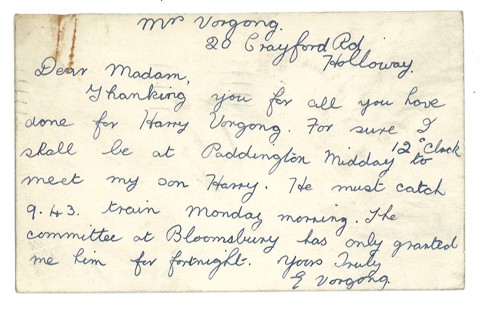 Mr Vorgong.
20 Crayford Rd
Holloway.
Dear Madam,
Thanking you for all you have
done for Harry Vorgong. For sure I
shall be at Paddington Midday 12 o'Clock to
meet my son Harry. He must catch
9.43. train Monday morning. The
committee at Bloomsbury has only granted
me him for fortnight. Yours Truly
E Vorgong.